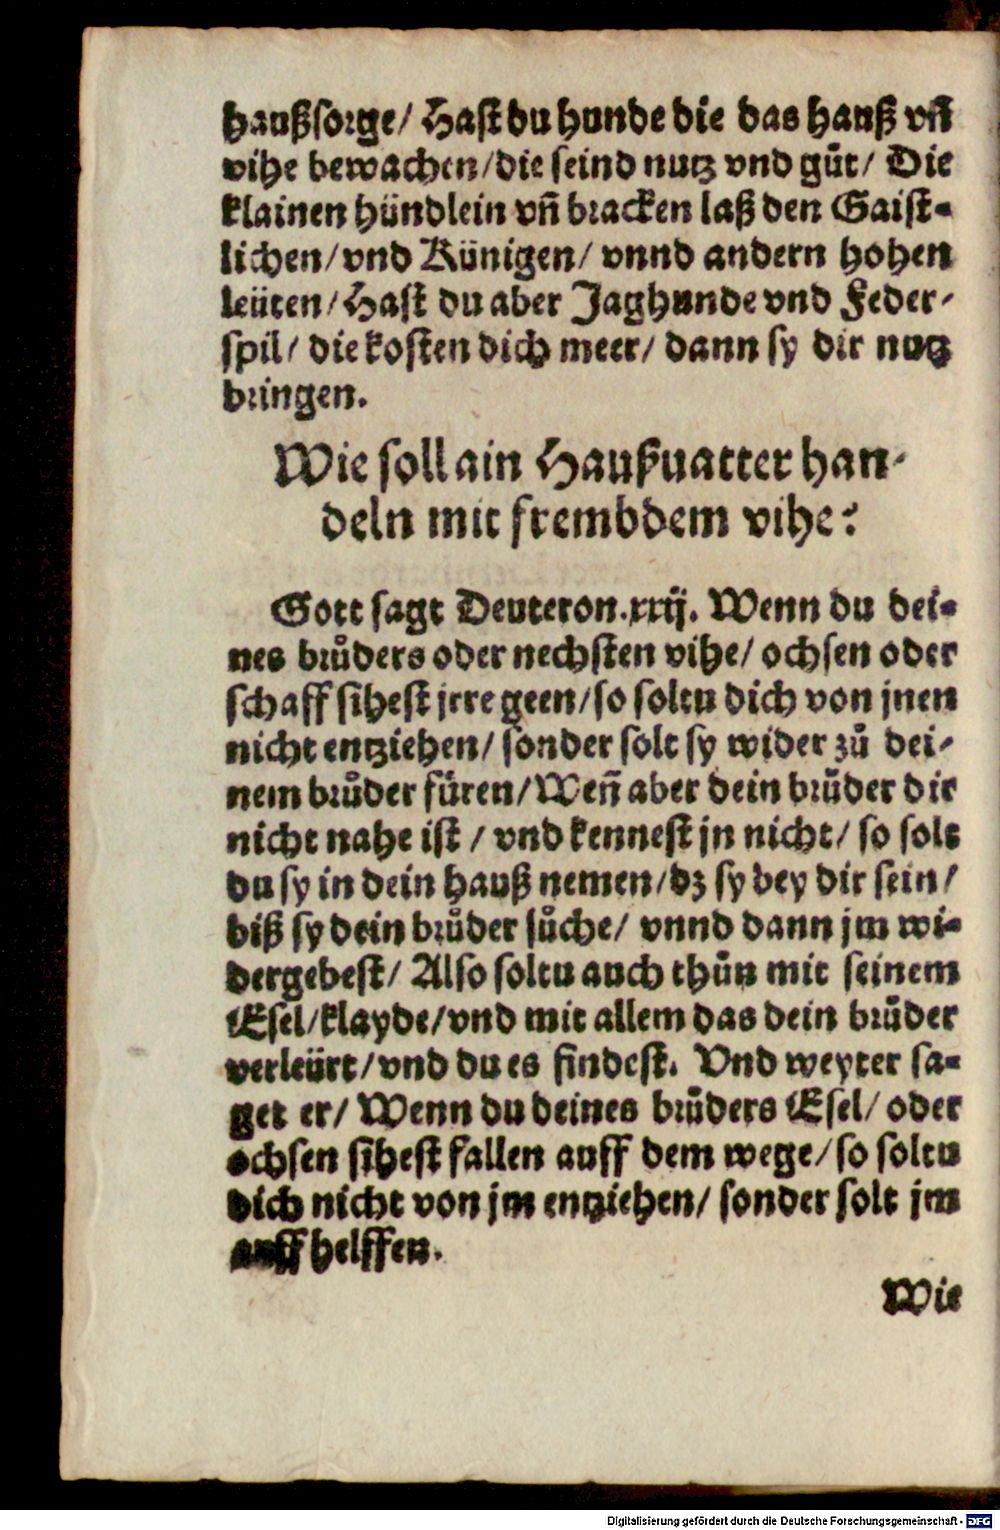 haußsorge/ Hast du hunde die das hauß vñ
vihe bewachen/ die seind nutz vnd gůt/ Die
klainen hündlein vñ bracken laß den Gaist-
lichen/ vnd Künigen/ vnnd andern hohen
leüten/ Hast du aber Jaghunde vnd Feder-
spil/ die kosten dich meer/ dann sy dir nutz
bringen.
Wie soll ain Haußuatter han-
deln mit frembdem vihe?
Gott sagt Deuteron.xxij. Wenn du dei-
nes brůders oder nechsten vihe/ ochsen oder
schaff sihest jrre geen/ so soltu dich von jnen
nicht entziehen/ sonder solt sy wider zů dei-
nem brůder füren/ Weñ aber dein brůder dir
nicht nahe ist / vnd kennest jn nicht/ so solt
du sy in dein hauß nemen/ dz sy bey dir sein/
biß sy dein brůder sůche/ vnnd dann jm wi-
dergebest/ Also soltu auch thůn mit seinem
Esel/ klayde/ vnd mit allem das dein brůder
verleürt/ vnd du es findest. Vnd weyter sa-
get er/ Wenn du deines brůders Esel/ oder
ochsen sihest fallen auff dem wege/ so soltu
dich nicht von jm entziehen/ sonder solt jm
auff helffen.
Wie
Digitalisierung gefördert durch die Deutsche Forschungsgemeinschaft - DFG